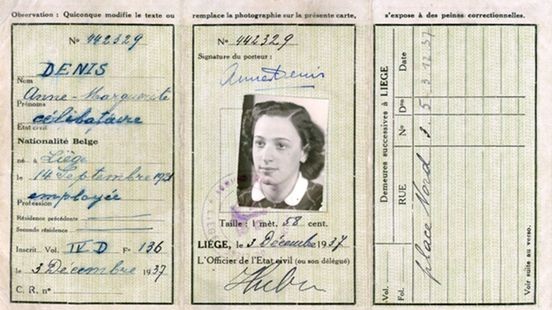 Observation : Quiconque modifie le texte ou remplace la photographie sur la présente carte, s'expose à des peines correctionnelles.
No 442329
DENIS
Nom
Anne-Marguerite
Prénoms
célibataire
Etat civil
Nationalité Belge
né - à Liége
le 14 Septembre
employée
Profession
Résidence précédente
Seconde résidence
Inscrit. Vol. IV D Fo 136
le 3 Décembre 1937
C. R. no
No 442329
Signature du porteur :
Anne Denis
LIEGE
Taille : 1 mèt. 58 cent.
LIÉGE, le 3 Décembre 1937
L'Officier de l'Etat civil (ou son délégué)
Demeures successives à LIÉGE
Date 3 12 37
Dom 5
No
RUE place Nord
Vol.
Fol.
Voir suite au verso.